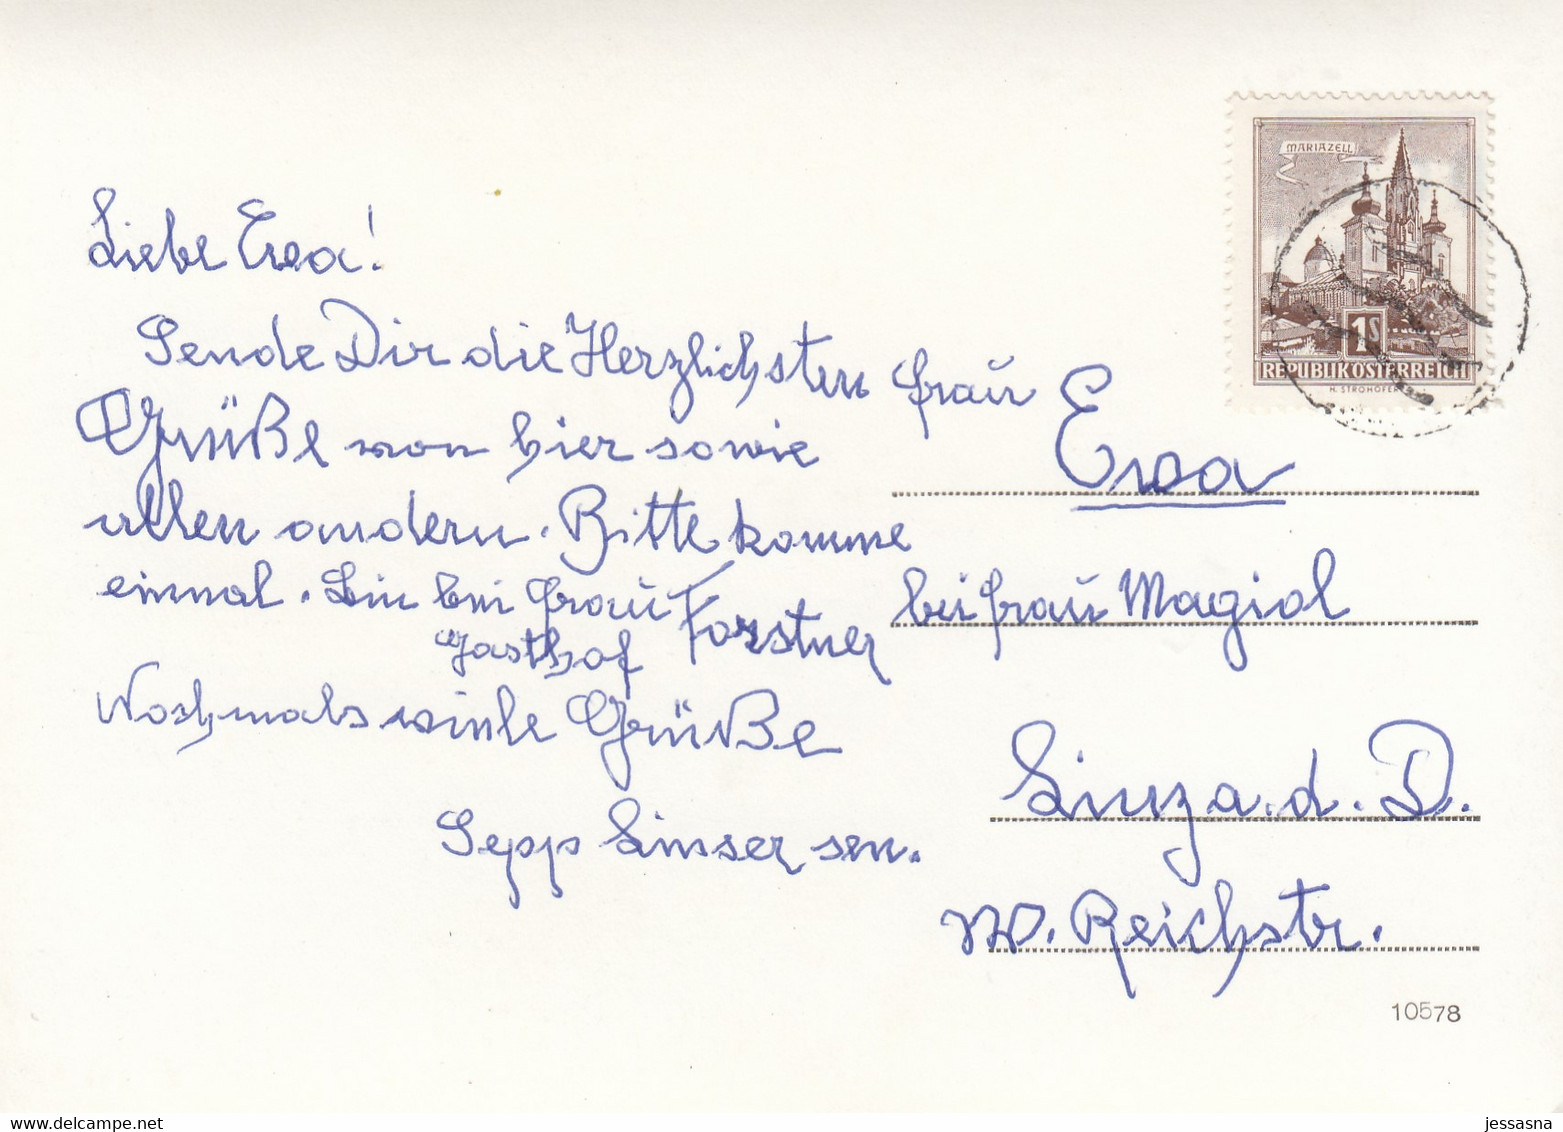 Liebe Eva!
Sende Dir die Herzlichsten
Grüße von hier sowie
allen andern. Bitte komme
einmal. Bin bei Frau Forstner
Gasthof
Nochmals viele Grüße
Sepp Linser sen.
MARIAZELL
1S
REPUBLIK ÖSTERREICH
H. STROHOFER
Frau
Eva
bei Frau Magiol
Linz a. d. D.
W. Reichstr.
10578
jessasna